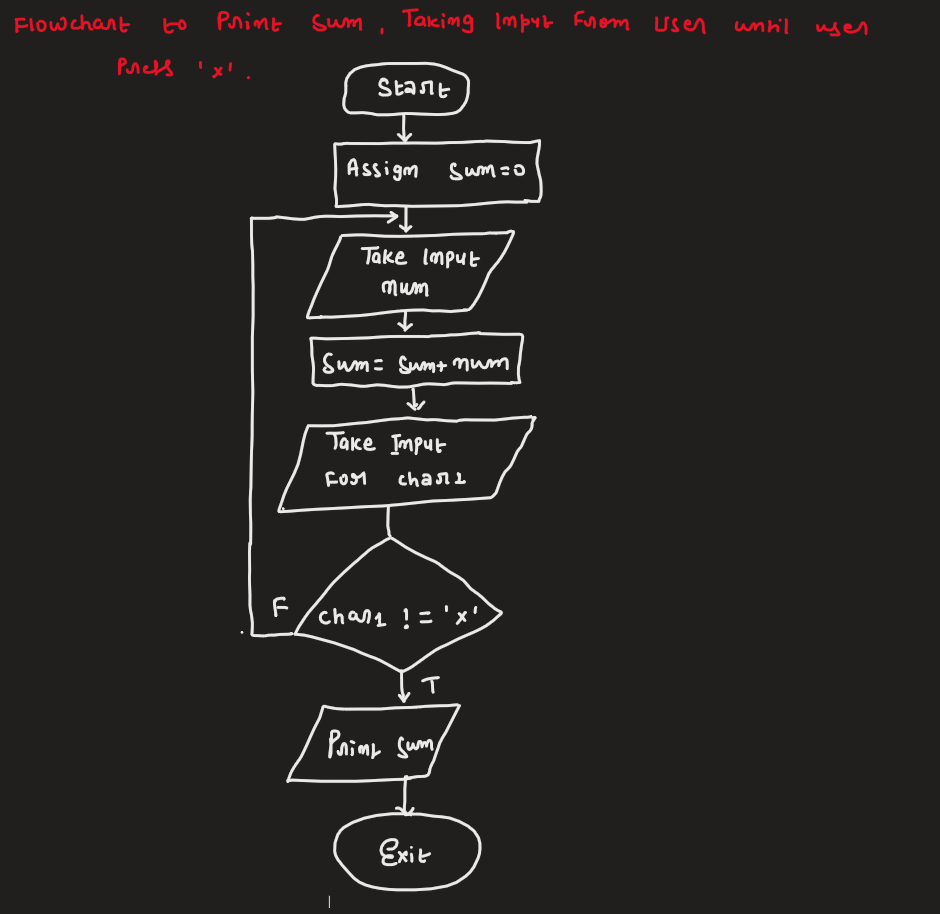 Flowchart to Print Sum, Taking Input From User until user
Press 'x'.
Start
Assign Sum=0
Take Input
num
Sum= Sum+num
Take Input
For char1
F
char1 != 'x'
T
Print Sum
Exit